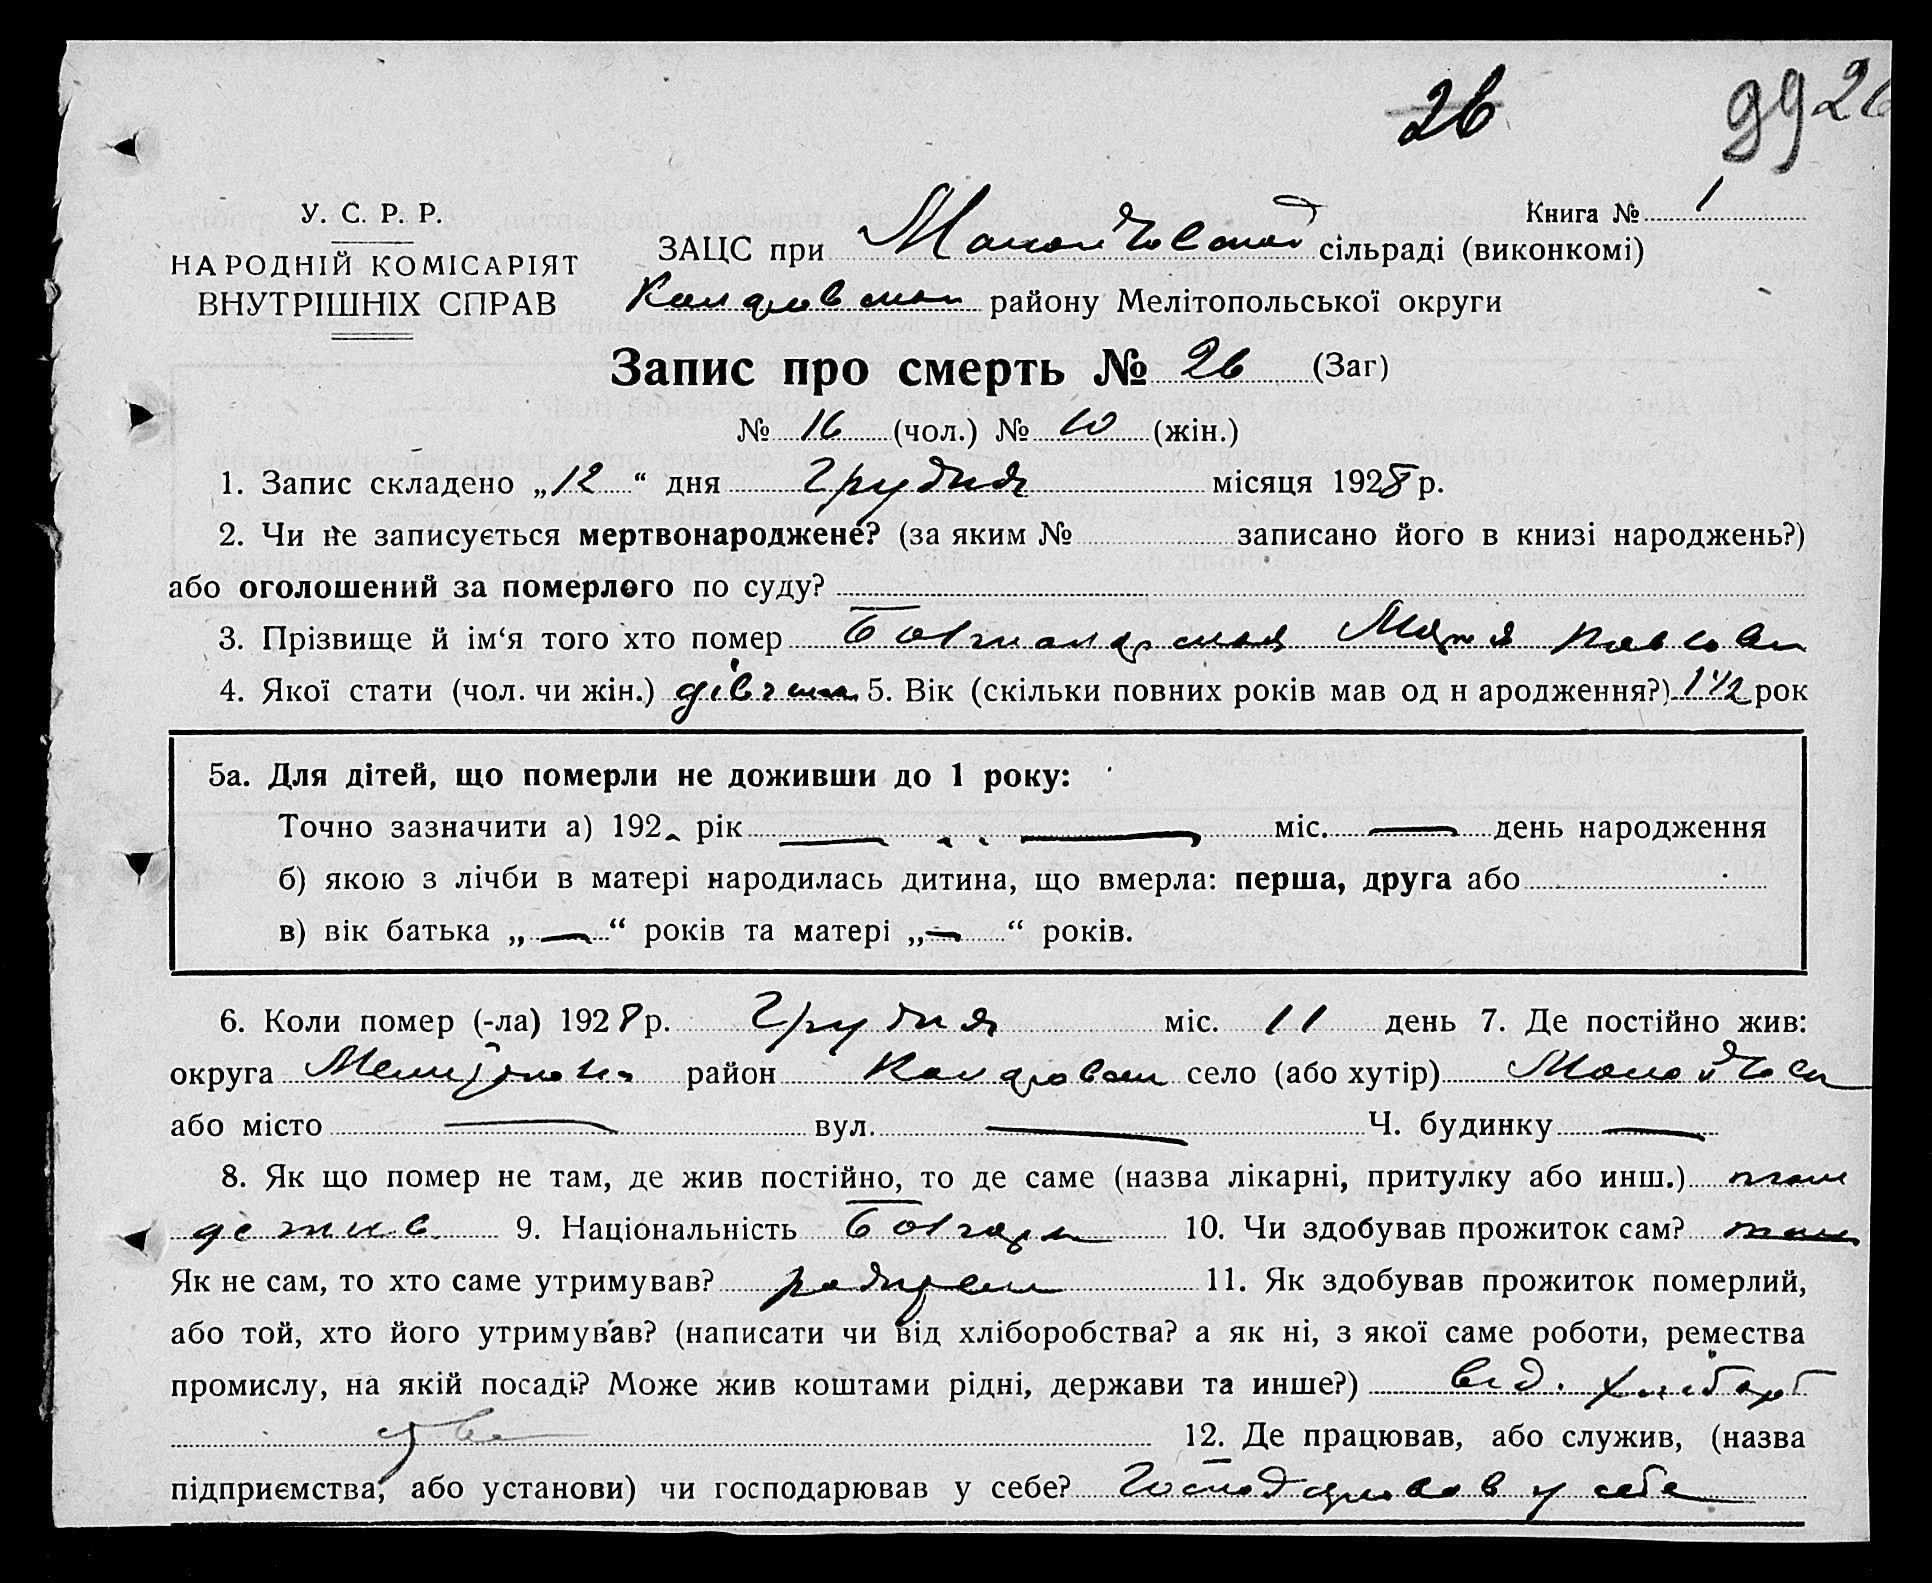 26 99 26
У. С. Р. Р.
НАРОДНІЙ КОМІСАРІЯТ
ВНУТРІШНІХ СПРАВ
Книга № 1
ЗАЦС при сільраді (виконкомі)
району Мелітопольської округи
Запис про смерть № 26 (Заг)
№ 16 (чол.) № 10 (жін.)
1. Запис складено „12“ дня Грудня місяця 1928 р.
2. Чи не записується мертвонароджене? (за яким № записано його в книзі народжень?)
або оголошений за померлого по суду?
3. Прізвище й ім‘я того хто помер
4. Якої стати (чол. чи жін.) 5. Вік (скільки повних років мав од н ародження?) 1 1/2 рок
5а. Для дітей, що померли не доживши до 1 року:
Точно зазначити а) 192 рік — — міс. — день народження
б) якою з лічби в матері народилась дитина, що вмерла: перша, друга або
в) вік батька „—“ років та матері „—“ років.
6. Коли помер (-ла) 1928 р. Грудня міс. 11 день 7. Де постійно жив:
округа район село (або хутір)
або місто — вул. — Ч. будинку —
8. Як що помер не там, де жив постійно, то де саме (назва лікарні, притулку або инш.) там
де жив 9. Національність Болгари 10. Чи здобував прожиток сам?
Як не сам, то хто саме утримував? 11. Як здобував прожиток померлий,
або той, хто його утримував? (написати чи від хліборобства? а як ні, з якої саме роботи, ремества
промислу, на якій посаді? Може жив коштами рідні, держави та инше?) від. хлібороб
ства 12. Де працював, або служив, (назва
підприємства, або установи) чи господарював у себе? Господарював у себе